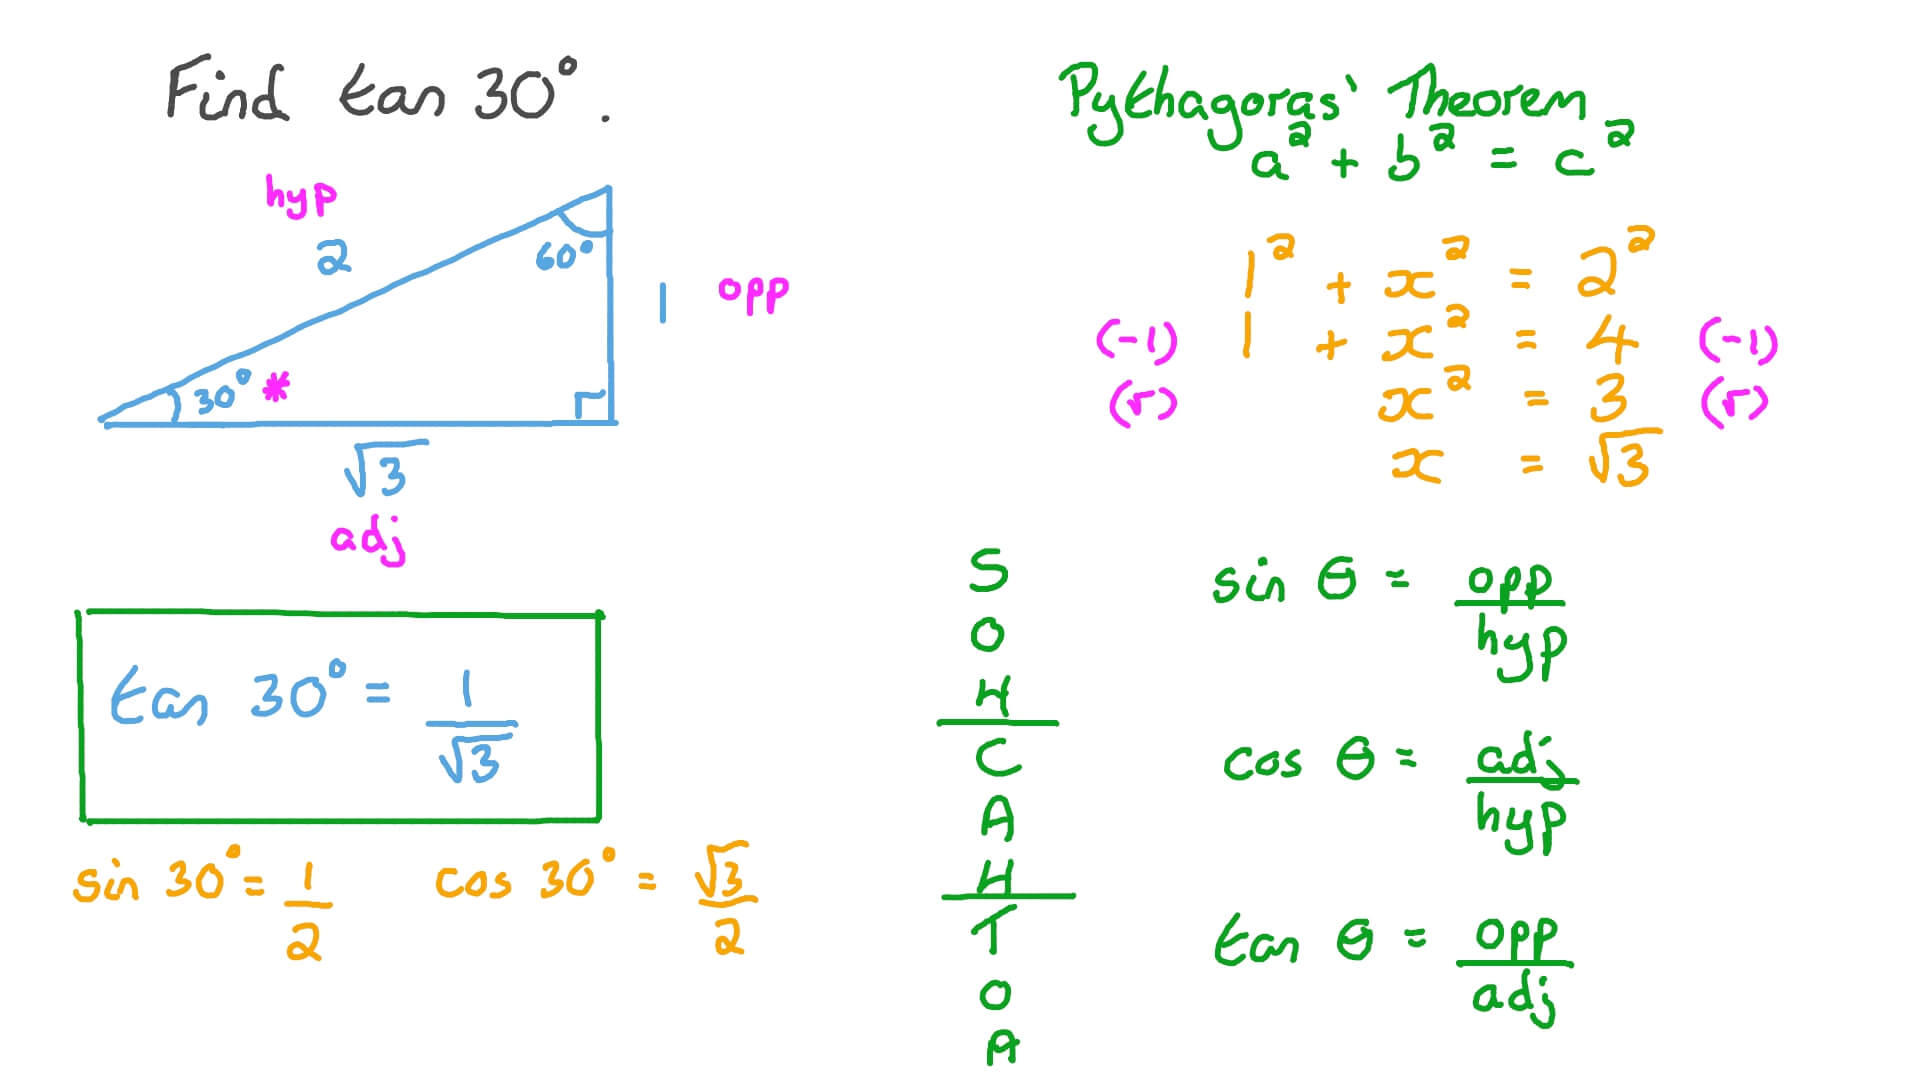 Find tan 30°.
hyp
2
60°
1 opp
30° *
√3
adj
tan 30° = 1/√3
sin 30° = 1/2
cos 30° = √3/2
Pythagoras' Theorem
a² + b² = c²
1² + x² = 2²
(-1) 1 + x² = 4 (-1)
(√) x² = 3 (√)
x = √3
S
O
H
C
A
H
T
O
A
sin θ = opp/hyp
cos θ = adj/hyp
tan θ = opp/adj